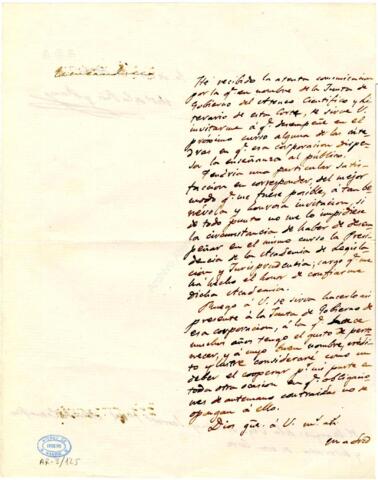 He recibido la atenta comunicacion
por la q.e en nombre de la Junta de
Gobierno del Ateneo Cientifico y Li-
terario de esta Corte, se sirve V.
invitarme á q.e desempeñe en el
próximo curso alguna de las cáte-
dras en q.e esa corporacion dispen-
sa la enseñanza al público.
Tendria una particular satis-
faccion en corresponder, del mejor
modo q.e me fuese posible, á tan be-
névola y honrosa invitacion, si
de todo punto no me lo impidiese
la circunstancia de haber de desem-
peñar en el mismo curso la Presi-
dencia de la Academia de Legisla-
cion y Jurisprudencia; cargo q.e me
ha hecho el honor de confiarme
dicha Academia.
Ruego á V. se sirva hacerlo así
presente á la Junta de Gobierno de
esa corporacion, á la q.e hace
muchos años tengo el gusto de perte-
necer, y á cuyo buen nombre, crédi-
to y lustre consideraré como un
deber el cooperar p.r mi parte en
toda otra ocasion en q.e obligacio-
nes de antemano contraidas no se
opongan á ello.
Dios gue. á V. m.s a.s
Madrid
ATENEO DE MADRID
AR-2/125